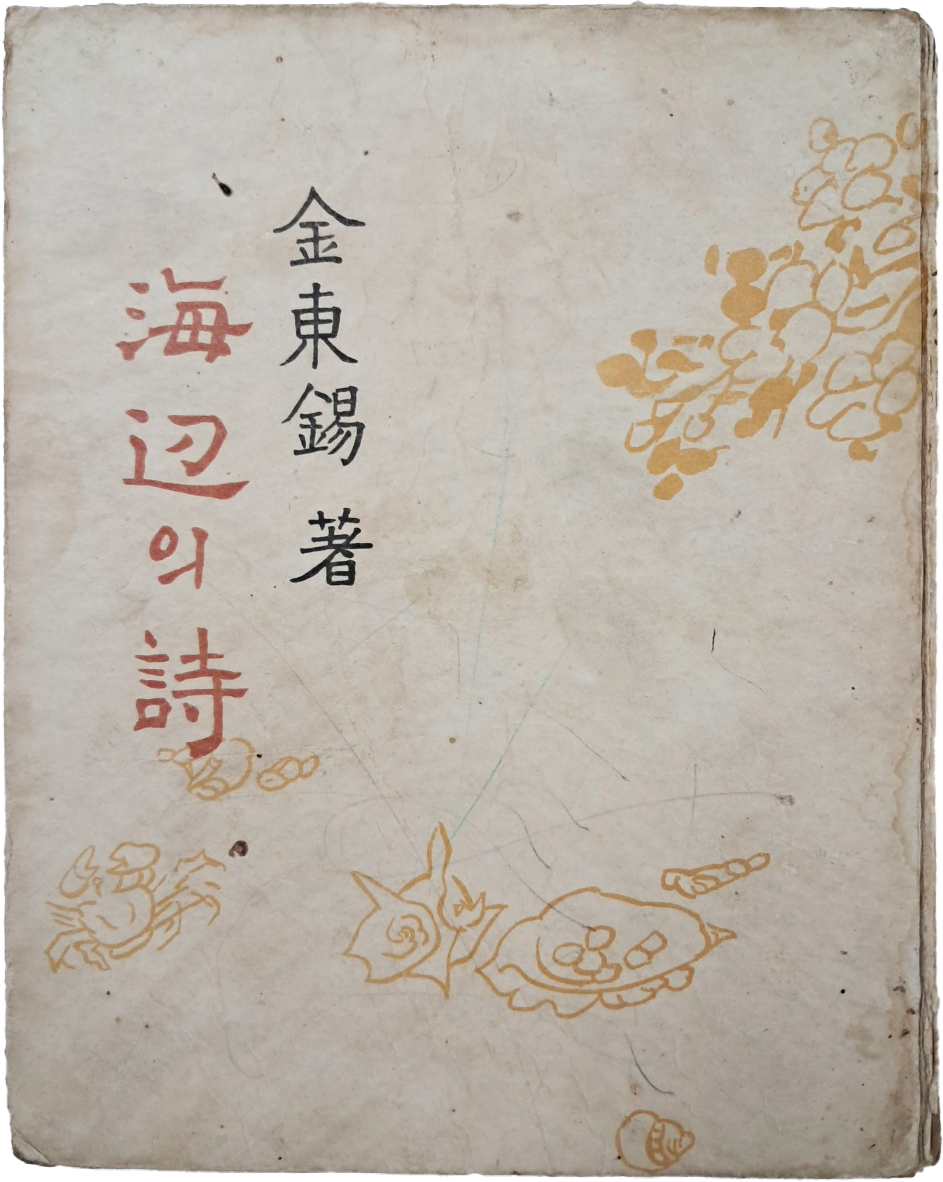 金東錫 著
海辺의 詩